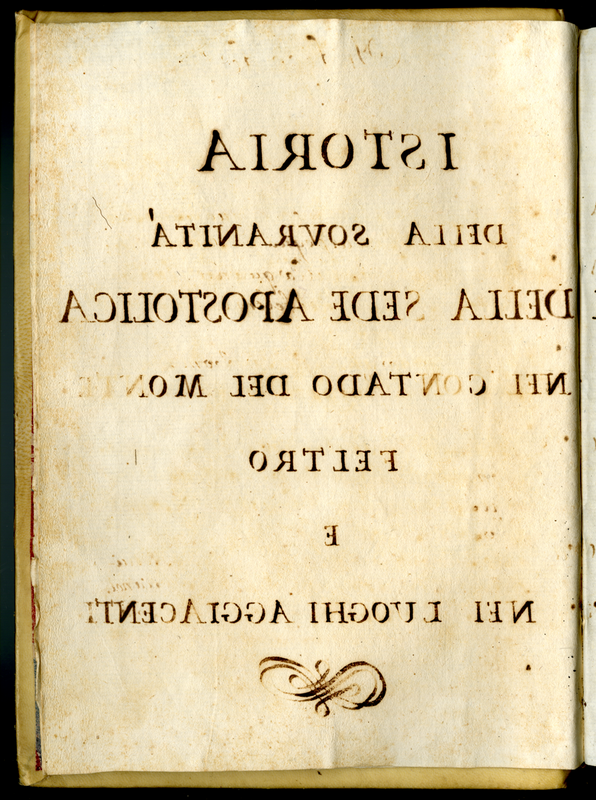 ISTORIA
DELLA SOVRANITA'
DELLA SEDE APOSTOLICA
NEL CONTADO DEL MONTE
FELTRO
E
NEI LUOGHI AGGIACENTI